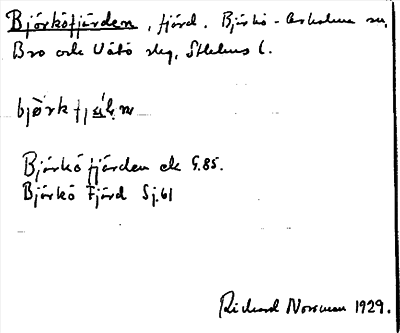 Björköfjärden, fjärd. Björkö-Arholma sn,
Bro och Vätö slg, Sthlms l.
Björkö fjärden ek G.85.
Björkö Fjärd Sj.61
Rickard Norrman 1929.